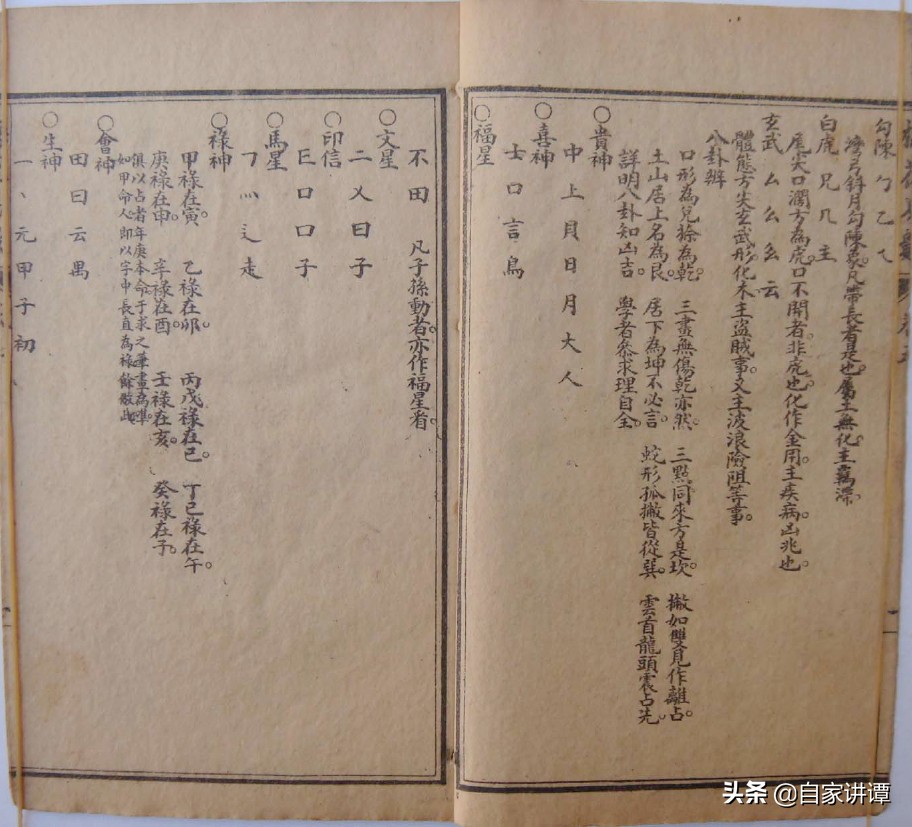 勾陳 勹 乙 乀
灣弓斜月勾陳象。凡帶長者是也。屬土無化主羈滯
白虎 兄 几 主
尾尖口濶方為虎。口不開者非虎也。化作金用。主疾病。凶兆也。
玄武 厶 幺 幺 云
體態方尖玄武形。化木主盜賊事。又主波浪險阻等事。
八卦辨
口形為兌捺為乾。 三畫無傷乾亦然。 三點同來方是坎。 撇如雙見作離占。
土山居上名為艮。 居下為坤不必言。 蛇形孤撇皆從巽。 雲首龍頭震占先。
詳明八卦知凶吉。 學者參求理自全。
○貴神
中 上 貝 日 月 大 人
○喜神
士 口 言 鳥
○福星
不 田 凡子孫動者。亦作福星看。
○文星
二 乂 曰 子
○印信
口 口 子
○馬星
灬 辶 走
○祿神
甲祿在寅。 乙祿在卯。 丙戊祿在巳。 丁己祿在午。
庚祿在申。 辛祿在酉。 壬祿在亥。 癸祿在子。
以占者年庚本命干求之筆畫為準。
如甲命人即以字中長直為祿餘倣此
○會神
田 日 云 禺
○生神
一 丶 元 甲 子 初
头条 @自家讲谭